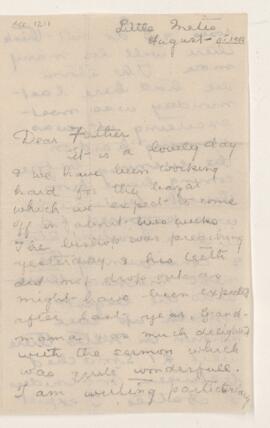 Little Metis
August
Dear Father
it is a lovely day
& we have been working
hard for the bazar
which we expect to come
off in about two weeks
The bishop was preaching
yesterday & his teeth
did not drop out as
might have been expected
after last year. Grand-
mama was much delighted
with the sermon which
was quite wonderfull.
I am writing